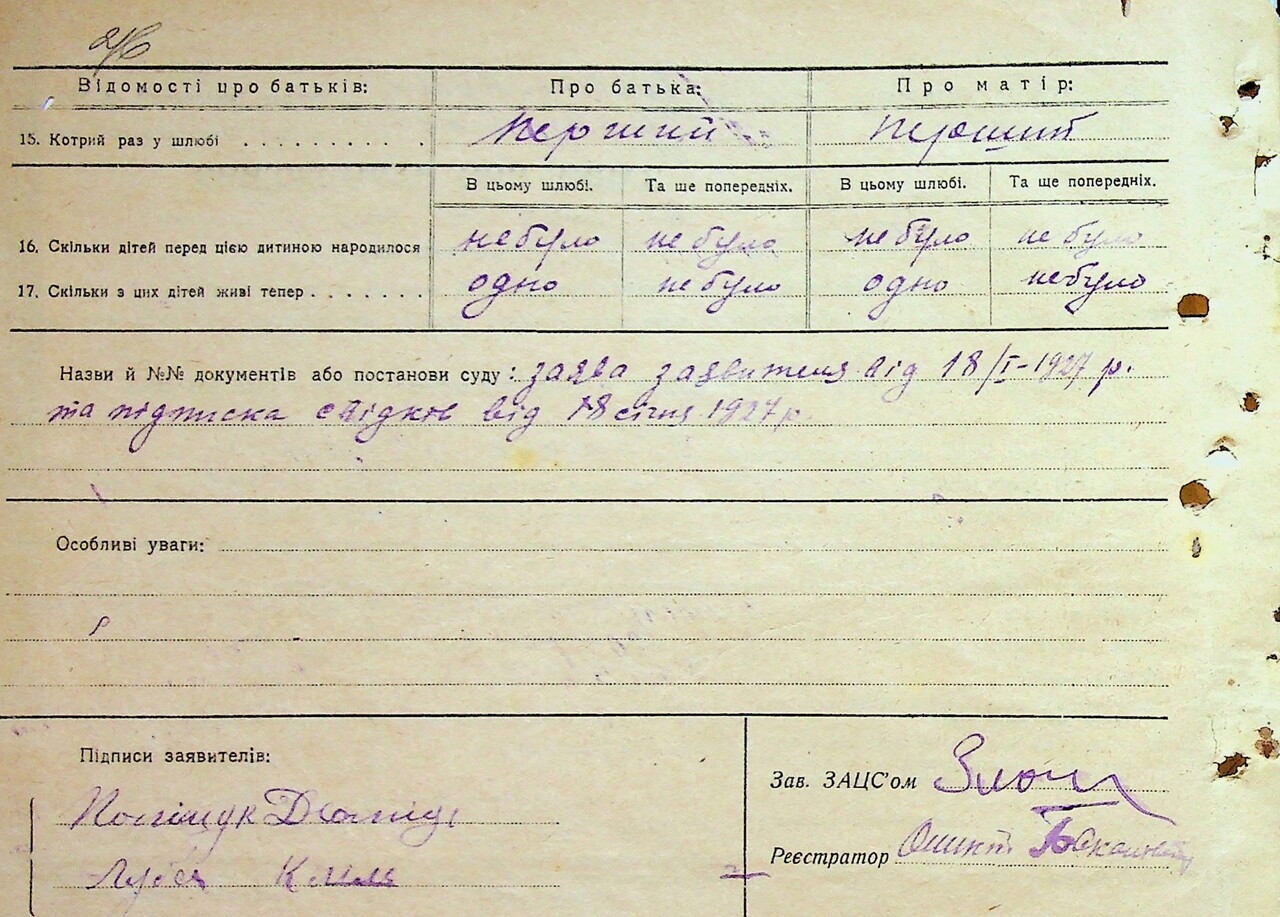 Відомості про батьків: Про батька: Про матір:
15. Котрий раз у шлюбі . . . . . . . . . . перший перший
В цьому шлюбі. Та ше попередніх. В цьому шлюбі. Та ще попередніх.
16. Скільки дітей перед цією дитиною народилося не було не було не було не було
17. Скільки з цих дітей живі тепер . . . . . . . одно не було одно не було
Назви й №№ документів або постанови суду: заява заявителя від 18/I-1927 р.
та підписка свідков від 18 січня 1927 р.
Особливі уваги:
Підписи заявителів:
Зав. ЗАЦС'ом
Поліщук
Реєстратор